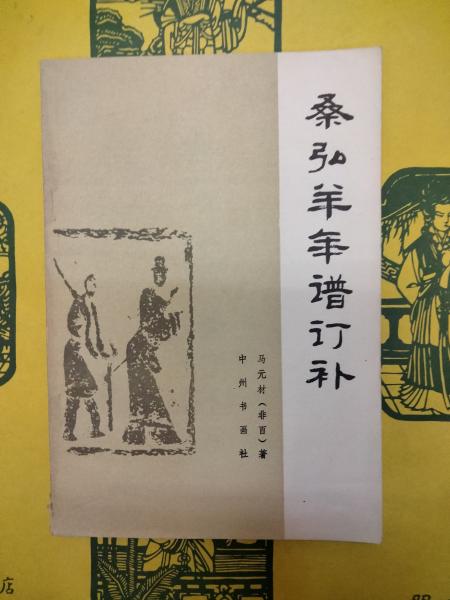 桑弘羊年谱订补
马元材（非百）著
中州书画社
店